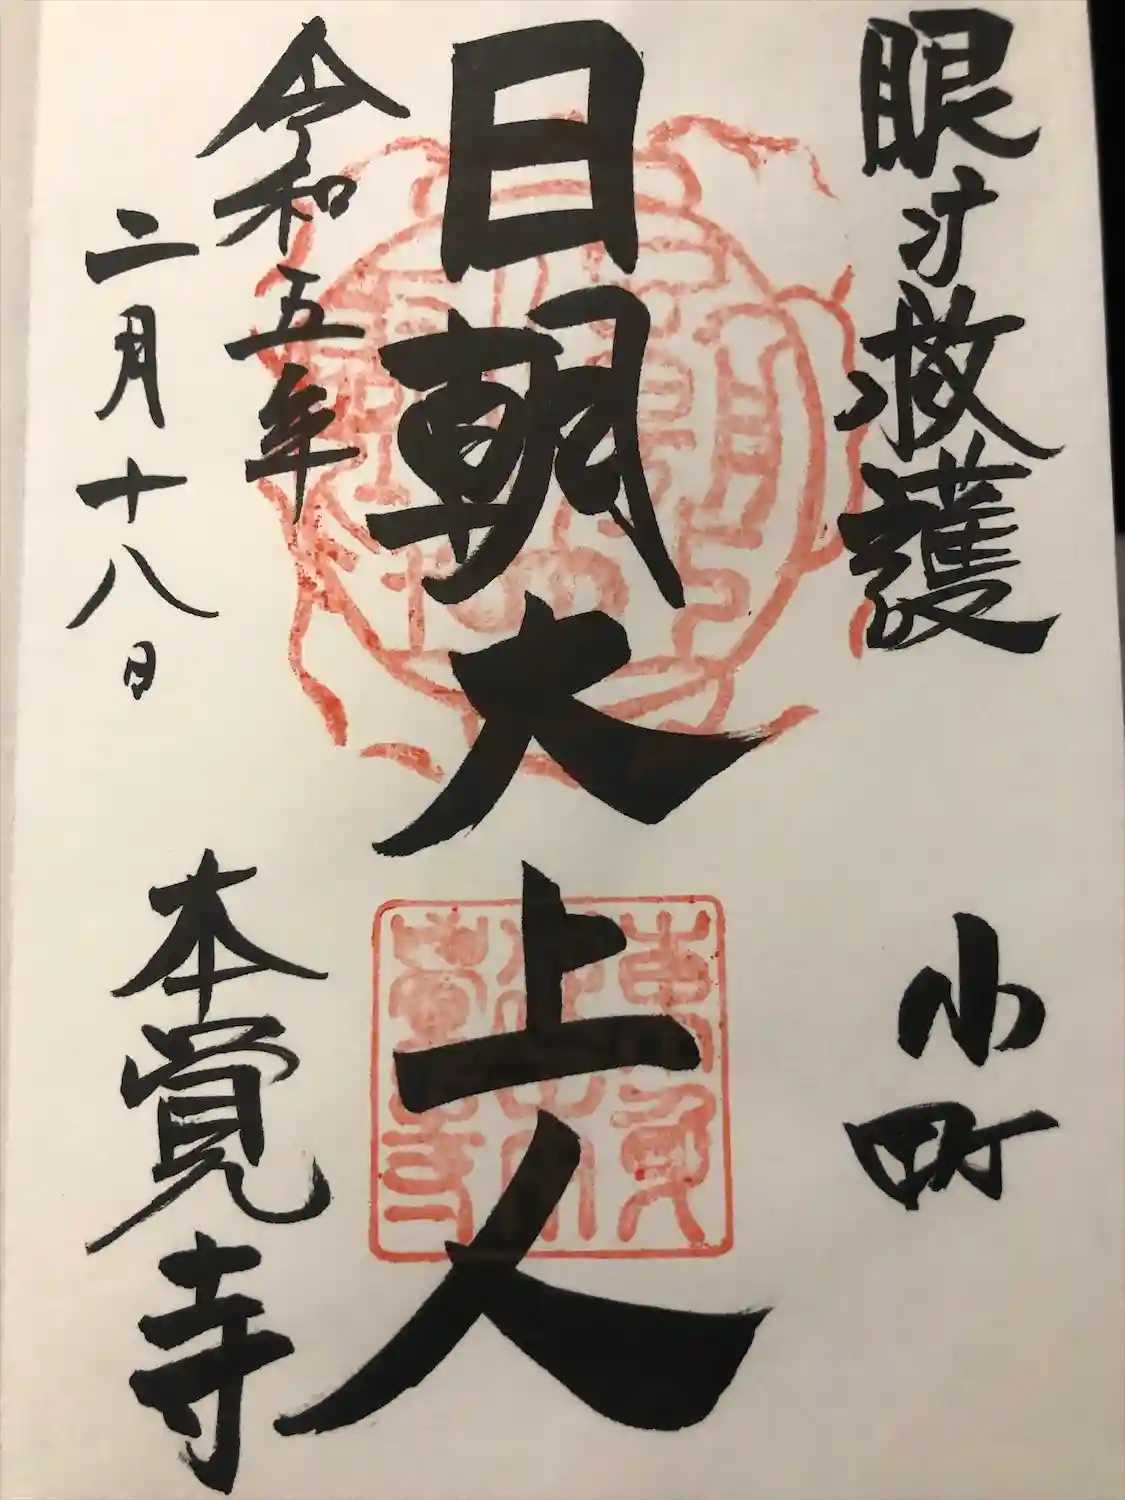 眼才救護
小町
日朝大上人
令和五年
二月十八日
本覚寺